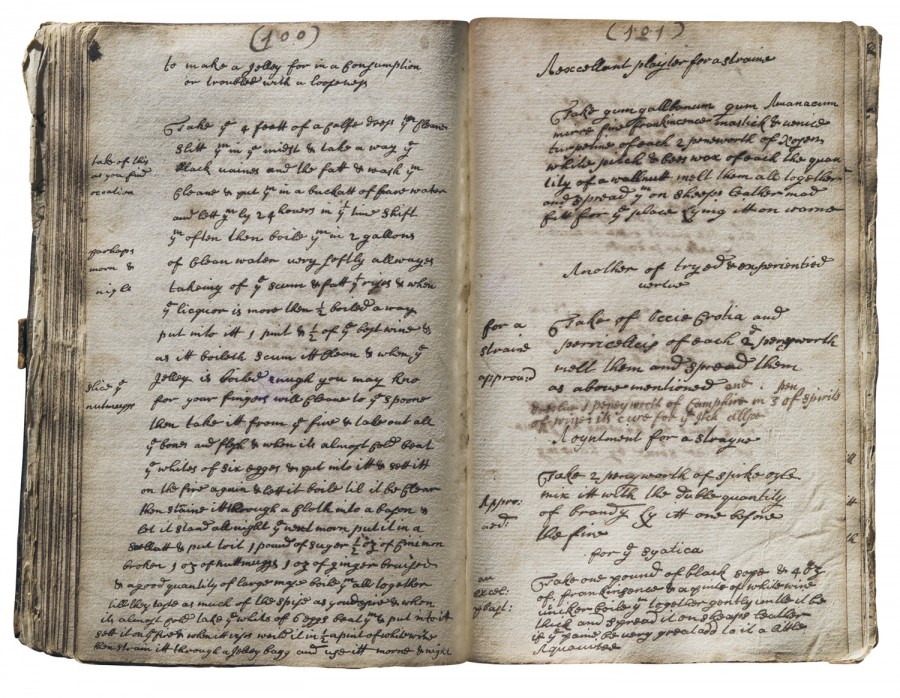 (100)
to make a Jelley for in a Consumption
or troubled with a loosenes
Take yᵉ 4 feett of a Calfe yᵐ Cleane
slitt yᵐ in yᵉ midst & take a way yᵉ
black vaines and the fatt & wash yᵐ
Cleane & put yᵐ in a buckatt of faire water
and lett yᵐ ly 24 howers in yᵗ time shift
yᵐ often then boile yᵐ in 2 gallons
of Clean water very softly allwayes
takeing of yᵉ scum & fatt yᵗ rises & when
yᵉ liequor is more then ½ boiled away
put into itt 1 pint & ½ of yᵉ best wine &
as itt boileth scum itt Clean & when yᵉ
Jelley is boiled enugh you may kno
for your fingers will Cleane to yᵉ spoone
then take itt from yᵉ fire & take out all
yᵉ bones and flesh & when its almost Cold beat
yᵉ whites of six egges & put into itt & sett itt
on the fire again & lett it boile til it be Clear
then straine itt through a Cloth into a bason &
let it stand all night yᵉ next morn put it in a
& put to it 1 pound of suger ½ oz of Cinemon
broken 1 oz of nuttmuggs 1 oz of ginger bruised
& a good quantity of large mase boile yᵐ all together
till they taste as much of the spise as you desire & when
its almost Cold take yᵉ whits off 6 eggs beat yᵐ & put into itt
sett it on fire & when it rises weele it in ½ a pint of white wine
then strain itt through a Jelley bagg and use itt morne & night
take of this
as you find
occation
perhaps
morn &
night
slice yᵉ
nutmuggs
(101)
A excellant plaister for a straine
Take gum gallbanum gum Amanacum
mirre fine frankincence mastick & venice
turpetine of each 2 penworth of
white pitch & bees wax of each the quan
tity of a wallnutt melt them all together
and spread yᵐ on sheeps leather mad
fitt for yᵉ place Lying itt on warme
Another of tryed & experientied
vertue
Take of Occie Crotia and
perricelluss of each 2 penyworth
melt them and spread them
as above mentioned
and pen
1 penyworth of Campfire in 3 of spirits
of its cure for yᵉ
for a
straine
approu:d
A oyntment for a strayne
Take 2 penyworth of spike oyle
mix itt with the duble quantity
of brandy & ly itt one before
the fire
Appro:
ued:
for yᵉ syatica
Take one pound of black sope & 4 oz
of frankinsence & a pinte of white wine
vineker boile yᵉ together gently untle it be
thick and spread it on sheeps leather
if yᵉ paine be very great add to it a little
Aquavitee
an
excel: